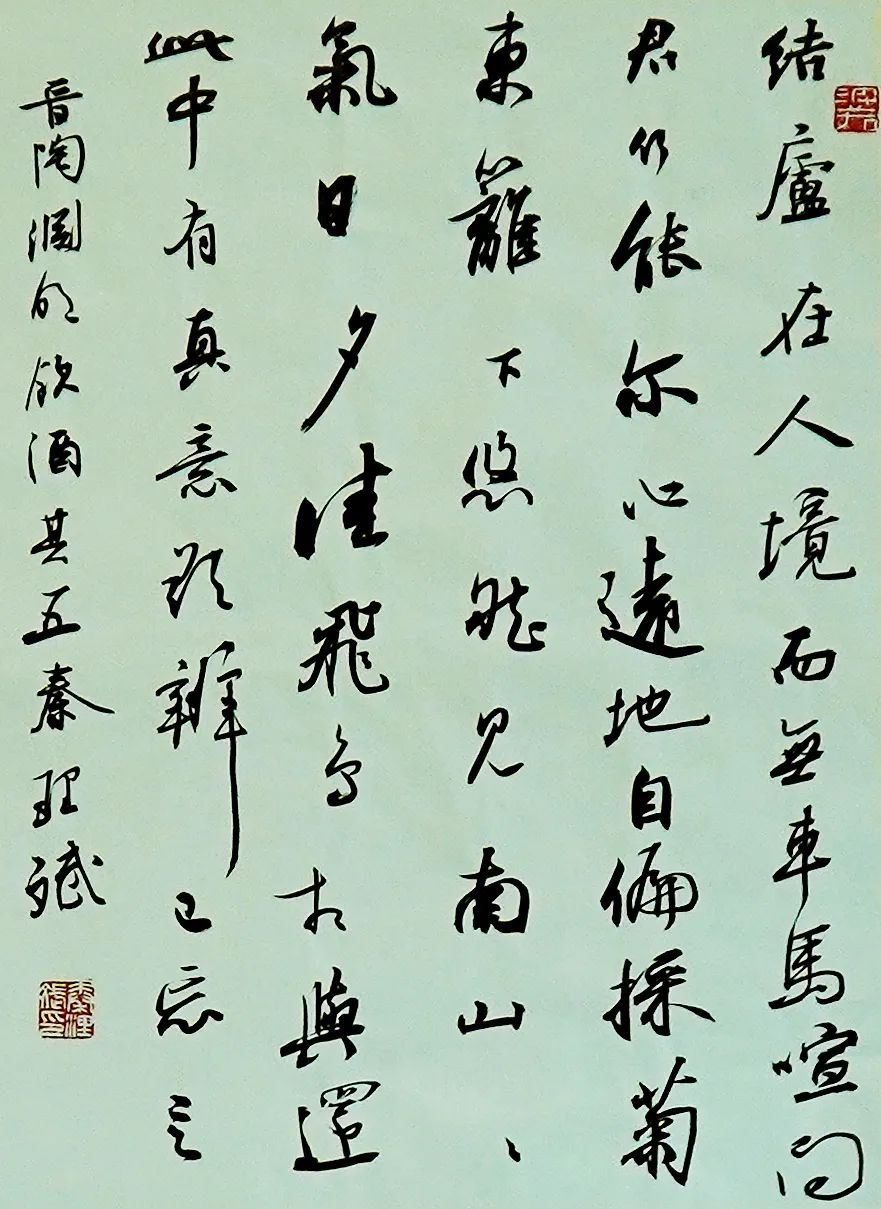 結廬在人境而無車馬喧問
君何能尔心遠地自偏採菊
東籬下悠然見南山、
氣日夕佳飛鳥相與還
此中有真意欲辨已忘言
晉陶淵明飲酒其五秦理斌
秦理斌印